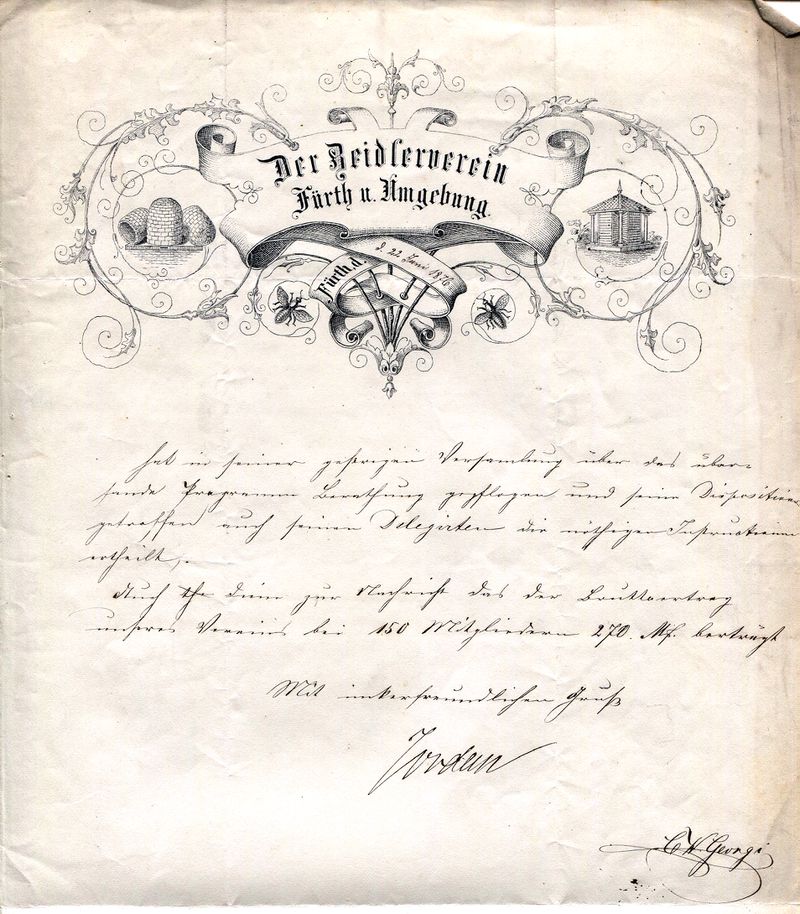 Der Zeidlerverein
Fürth u. Umgebung.
Fürth, d. 22. Juni 1876
hat in seiner gestrigen Versamlung über das über-
sande Programm Berathung gepflogen und seine Disposition
getroffen auch seinen Delegirten die nöthigen Instructionen
ertheilt,
Auch diene zur Nachricht das der Bruttoertrag
unseres Vereins bei 150 Mitgliedern 270. Mk. berträgt
Mit imkerfreundlichen Gruß
Jordan
Georgi